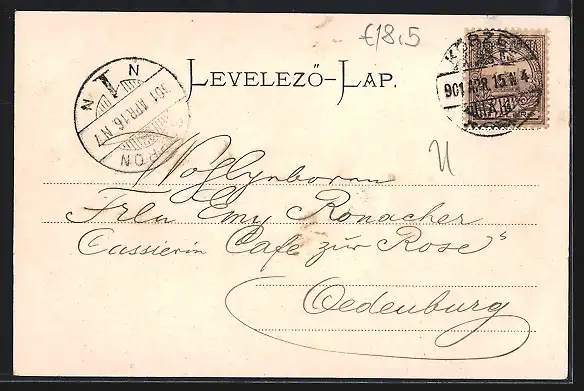 €18,5
LEVELEZŐ-LAP.
KŐSZE
901 APR 15 N 4
N I N
901 APR 16 N 7
PRON
Wohlgeboren
Frln Emy Ronacher
Cassierin Cafe zur Rose"
Oedenburg